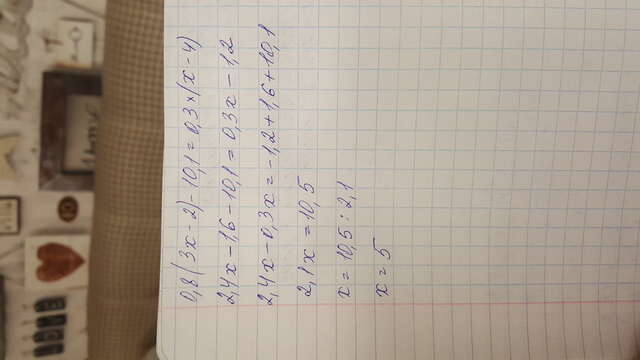 0,8(3x-2)-10,1=0,3×(x-4)
2,4x-1,6-10,1=0,3x-1,2
2,4x-0,3x=-1,2+1,6+10,1
2,1x=10,5
x=10,5:2,1
x=5